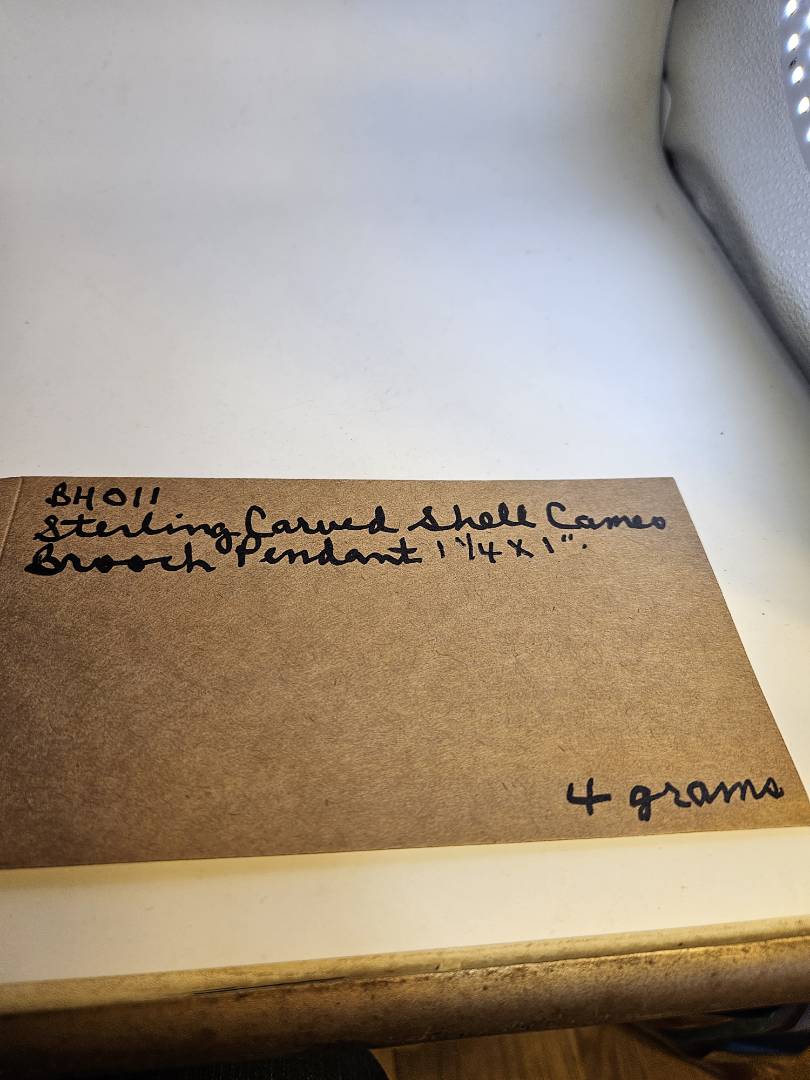 BH011
Sterling Carved Shell Cameo
Brooch Pendant 1 1/4 X 1".
4 grams